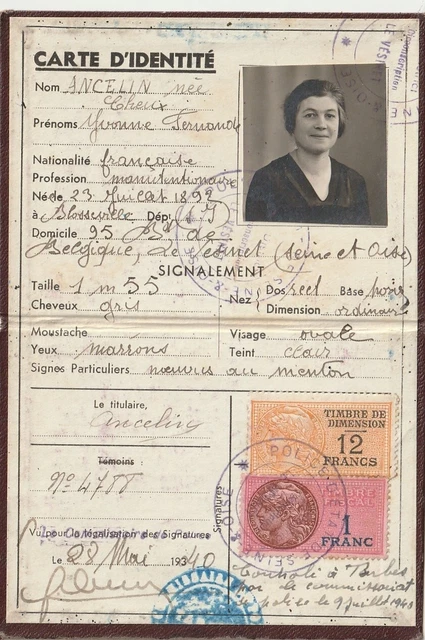 CARTE D'IDENTITÉ
Nom ANCELIN née
Cheux
Prénoms Yvonne Fernand
Nationalité française
Profession manutentionnaire
Né de 23 Juillet 1892
à Blosseville Dépt
Domicile 95 Bd de
Belgique, Le Vésinet (Seine et Oise)
SIGNALEMENT
Taille 1 m 55
Cheveux gris
Nez Dos rect Base
Dimension ordinaire
Moustache
Visage ovale
Yeux marrons
Teint clair
Signes Particuliers nævus au menton
Le titulaire,
Ancelin
Témoins :
No
Vu pour la légalisation des Signatures
Le 28 Mai 1940
Signatures
TIMBRE DE
DIMENSION
12
FRANCS
TIMBRE
FISCAL
1
FRANC
Contrôlé à
par le commissariat
de police le 9 juillet 1940